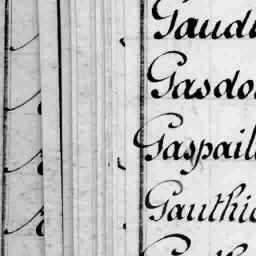 Gaudi
Gasdo
Gaspail
Gauthie